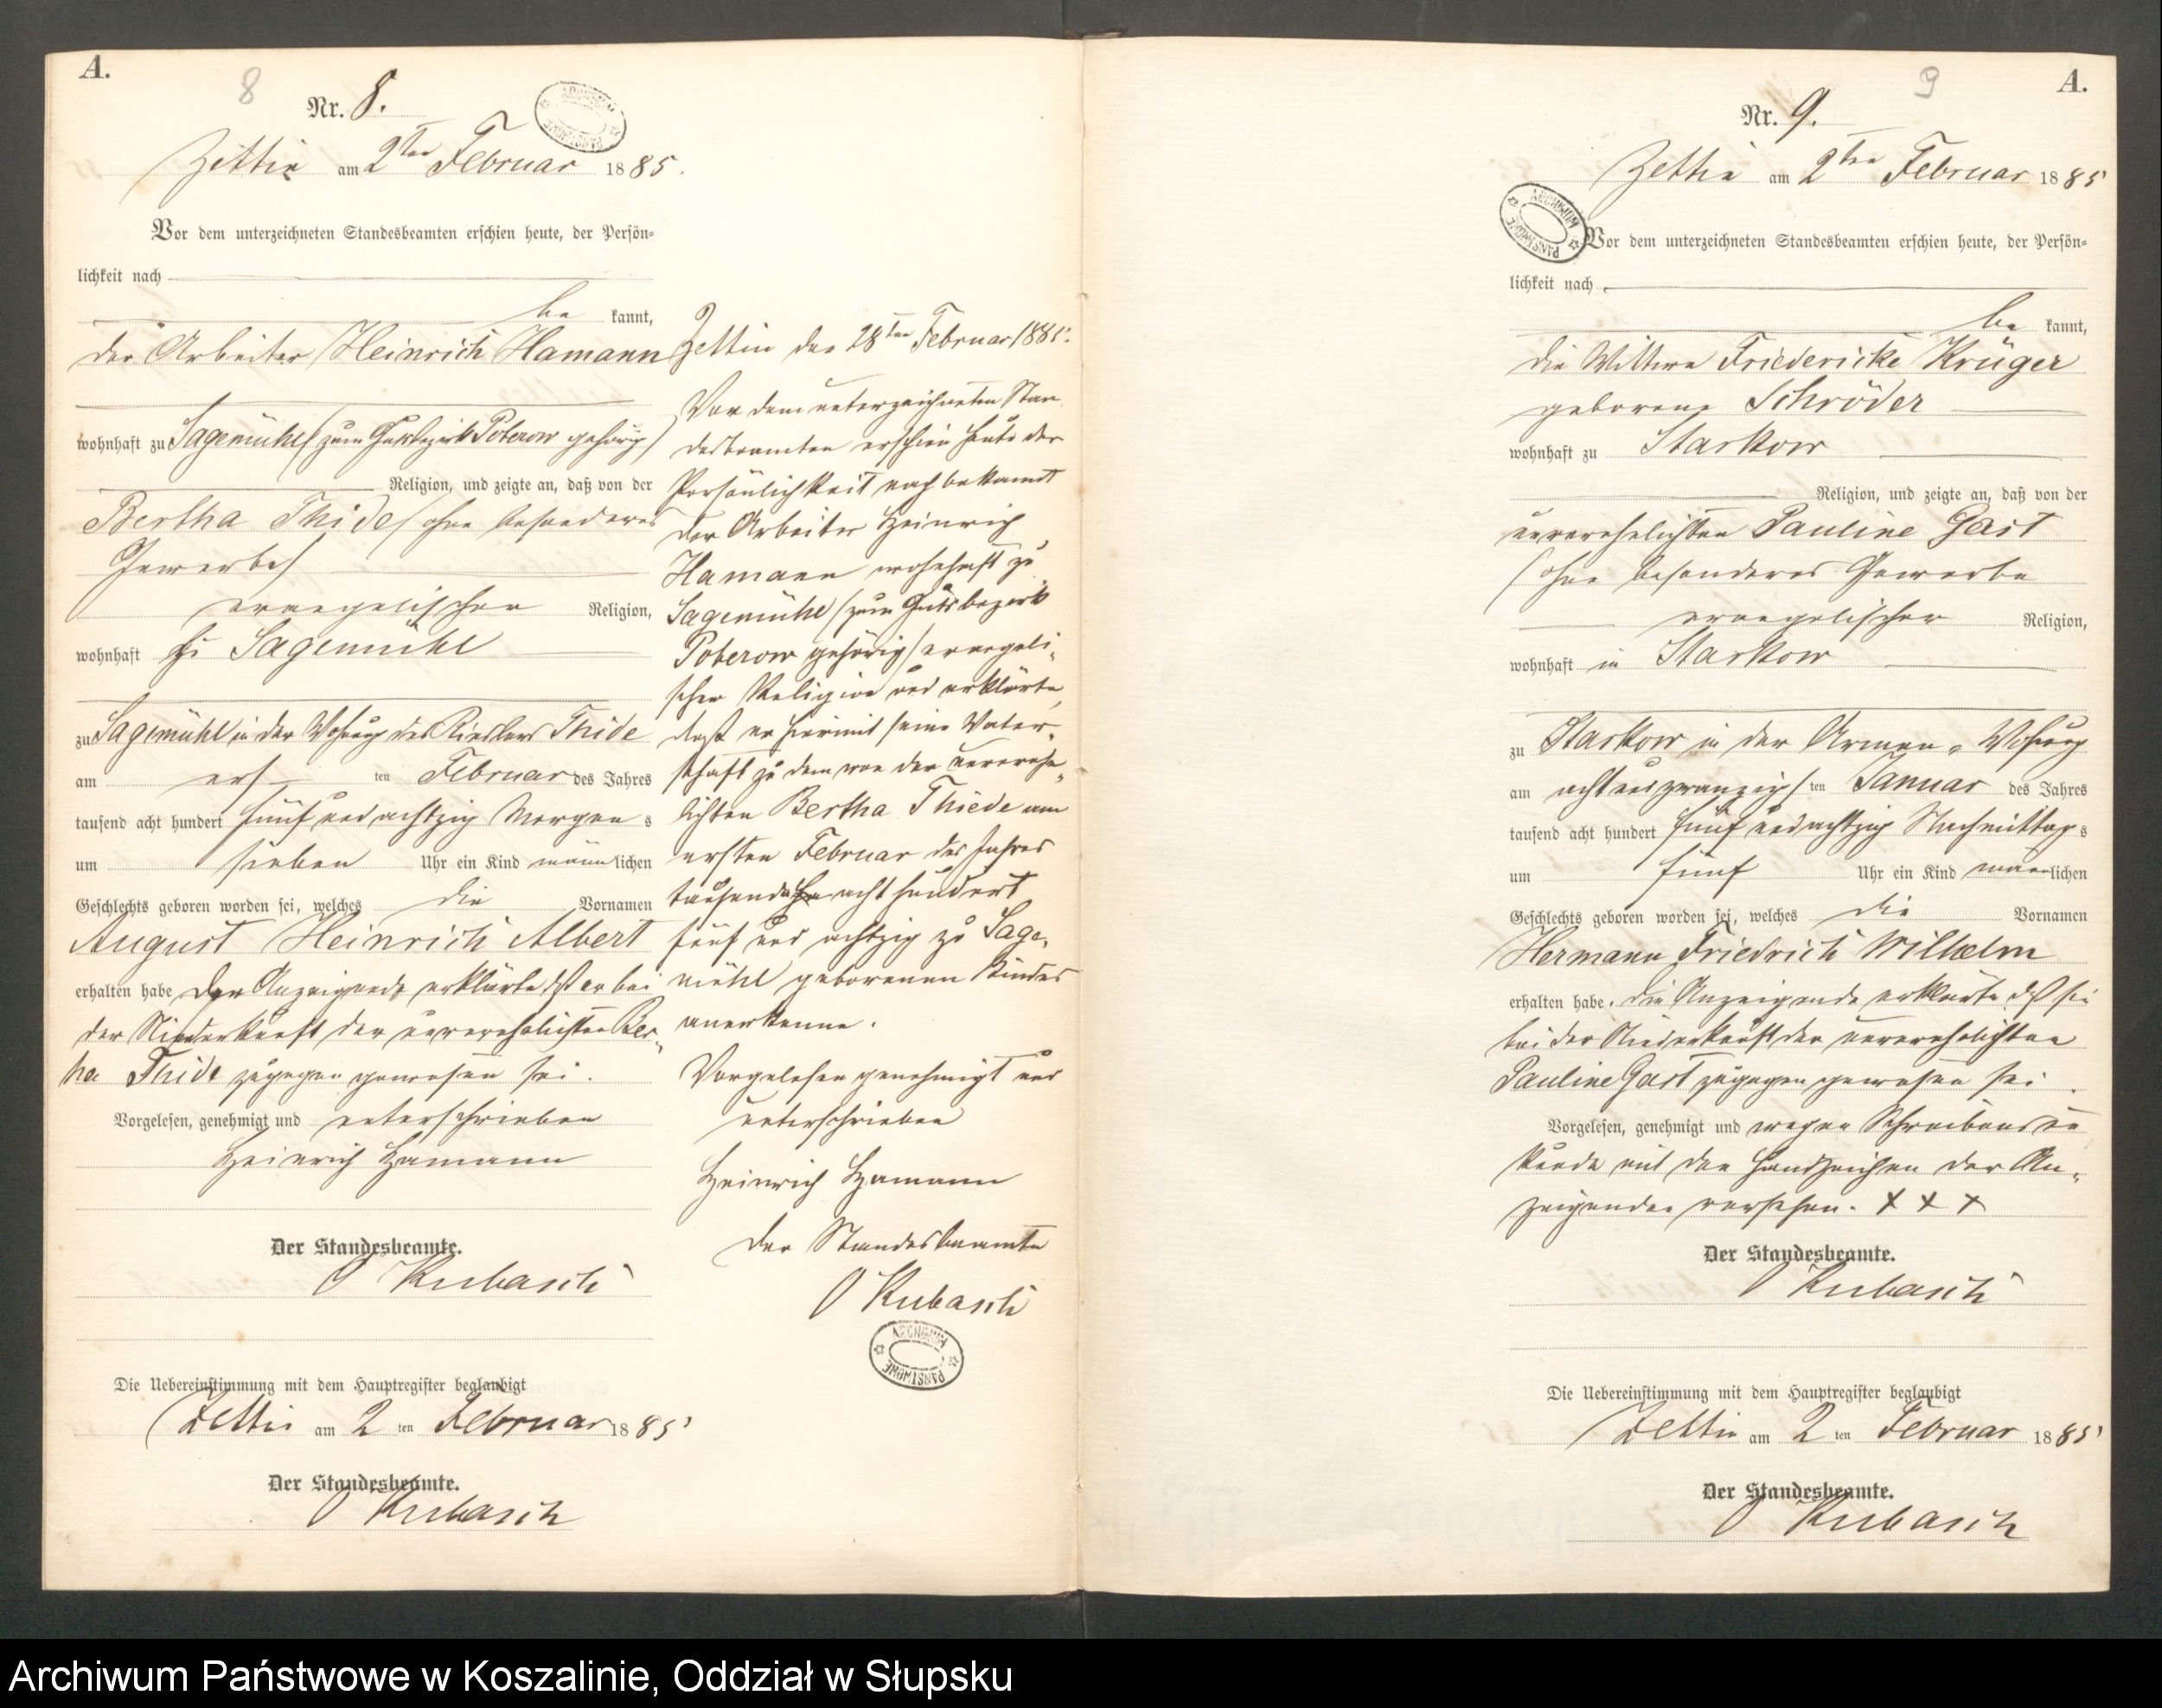 A.
8
Nr. 8.
Zettin am 2ten Februar 1885.
Vor dem unterzeichneten Standesbeamten erschien heute, der Persön-
lichkeit nach
be kannt,
der Arbeiter Heinrich Hamann
wohnhaft zu Sagemühl (zum Gutsbezirk Poberow gehörig)
Religion, und zeigte an, daß von der
Bertha Thide (ohne besonderes
Gewerbe)
evangelischer Religion,
wohnhaft zu Sagemühl
zu Sagemühl in der Wohnung des Thide
am ersten Februar des Jahres
tausend acht hundert fünf und achtzig Morgens
um sieben Uhr ein Kind männlichen
Geschlechts geboren worden sei, welches die Vornamen
August Heinrich Albert
erhalten habe Der Anzeigende erklärte daß er bei
der Niederkunft der unverehelichten Ber-
ha Thide zugegen gewesen sei.
Vorgelesen, genehmigt und unterschrieben
Heinrich Hamann
Der Standesbeamte.
Kubasch
Die Uebereinstimmung mit dem Hauptregister beglaubigt
Zettin am 2 ten Februar 1885
Der Standesbeamte.
Kubasch
Zettin den 28ten Februar 1885.
Vor dem unterzeichneten Stan
desbeamten erschien heute der
Persönlichkeit nach bekannt
der Arbeiter Heinrich
Hamann wohnhaft zu
Sagemühl (zum Gutsbezirk
Poberow gehörig) evangeli-
scher Religion und erklärte,
daß er hiermit seine Vater-
schaft zu dem von der unverehe-
lichten Bertha Thiede am
ersten Februar des Jahres
tausend acht hundert
fünf und achtzig zu Sage-
mühl geborenen Kindes
anerkenne.
Vorgelesen genehmigt und
unterschrieben
Heinrich Hamann
Der Standesbeamte
Kubasch
ARCHIWUM PAŃSTWOWE
A.
9
Nr. 9.
Zettin am 2ten Februar 1885
ARCHIWUM PAŃSTWOWE
Vor dem unterzeichneten Standesbeamten erschien heute, der Persön-
lichkeit nach
be kannt,
die Wittwe Friedericke Krüger
geborene Schröder
wohnhaft zu Starkow
Religion, und zeigte an, daß von der
unverehelichten Pauline Gast
(ohne besonderes Gewerbe
evangelischer Religion,
wohnhaft in Starkow
zu Starkow in der Armen-Wohnung
am acht und zwanzigsten Januar des Jahres
tausend acht hundert fünf und achtzig Nachmittags
um fünf Uhr ein Kind männlichen
Geschlechts geboren worden sei, welches die Vornamen
Hermann Friedrich Wilhelm
erhalten habe. Die Anzeigende erklärte daß sie
bei der Niederkunft der unverehelichten
Pauline Gast zugegen gewesen sei.
Vorgelesen, genehmigt und wegen Schreibens un
kunde mit den Handzeichen der An-
zeigenden versehen. X X X
Der Standesbeamte.
Kubasch
Die Uebereinstimmung mit dem Hauptregister beglaubigt
Zettin am 2 ten Februar 1885
Der Standesbeamte.
Kubasch
Archiwum Państwowe w Koszalinie, Oddział w Słupsku